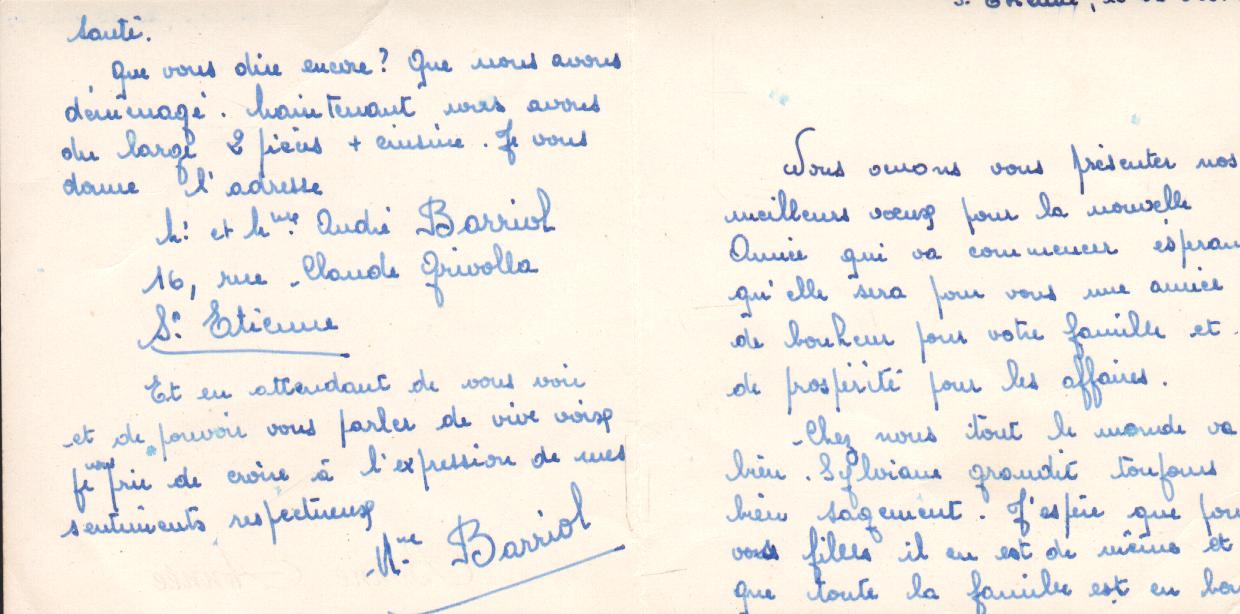 santé.
Que vous dire encore? Que nous avons
déménagé. Maintenant nous avons
du large 2 pièces + cuisine. Je vous
donne l'adresse
Mr et Mme André Barriol
16, rue Claude Grivolla
St Etienne
Et en attendant de vous voir
et de pouvoir vous parler de vive voix
je vous prie de croire à l'expression de mes
sentiments respectueux
Mme Barriol
St Etienne, le
Nous venons vous présenter nos
meilleurs voeux pour la nouvelle
Année qui va commencer espéran
qu'elle sera pour vous une année
de bonheur pour votre famille et
de prospérité pour les affaires.
Chez nous tout le monde va
bien. Sylviane grandit toujours
bien sagement. J'espère que pou
vos filles il en est de même et
que toute la famille est en bon